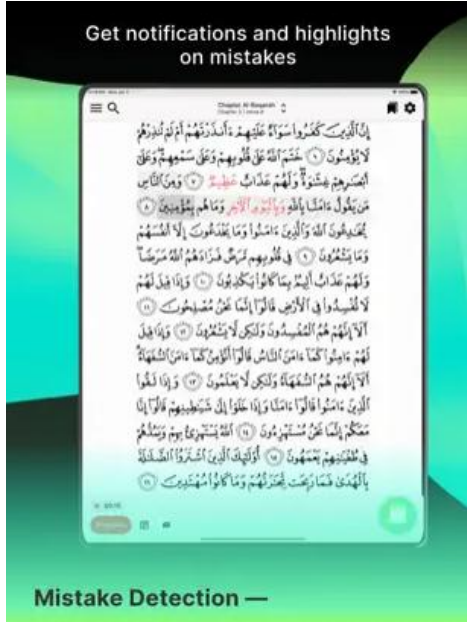 Get notifications and highlights
on mistakes
Chapter Al-Baqarah
إِنَّ ٱلَّذِينَ كَفَرُوا۟ سَوَآءٌ عَلَيْهِمْ ءَأَنذَرْتَهُمْ أَمْ لَمْ تُنذِرْهُمْ
لَا يُؤْمِنُونَ ٦ خَتَمَ ٱللَّهُ عَلَىٰ قُلُوبِهِمْ وَعَلَىٰ سَمْعِهِمْ ۖ وَعَلَىٰٓ
أَبْصَـٰرِهِمْ غِشَـٰوَةٌ ۖ وَلَهُمْ عَذَابٌ عَظِيمٌ ٧ وَمِنَ ٱلنَّاسِ
مَن يَقُولُ ءَامَنَّا بِٱللَّهِ وَبِٱلْيَوْمِ ٱلْـَٔاخِرِ وَمَا هُم بِمُؤْمِنِينَ ٨
يُخَـٰدِعُونَ ٱللَّهَ وَٱلَّذِينَ ءَامَنُوا۟ وَمَا يَخْدَعُونَ إِلَّآ أَنفُسَهُمْ
وَمَا يَشْعُرُونَ ٩ فِى قُلُوبِهِم مَّرَضٌ فَزَادَهُمُ ٱللَّهُ مَرَضًا ۖ
وَلَهُمْ عَذَابٌ أَلِيمٌۢ بِمَا كَانُوا۟ يَكْذِبُونَ ١٠ وَإِذَا قِيلَ لَهُمْ
لَا تُفْسِدُوا۟ فِى ٱلْأَرْضِ قَالُوٓا۟ إِنَّمَا نَحْنُ مُصْلِحُونَ ١١
أَلَآ إِنَّهُمْ هُمُ ٱلْمُفْسِدُونَ وَلَـٰكِن لَّا يَشْعُرُونَ ١٢ وَإِذَا قِيلَ
لَهُمْ ءَامِنُوا۟ كَمَآ ءَامَنَ ٱلنَّاسُ قَالُوٓا۟ أَنُؤْمِنُ كَمَآ ءَامَنَ ٱلسُّفَهَآءُ ۗ
أَلَآ إِنَّهُمْ هُمُ ٱلسُّفَهَآءُ وَلَـٰكِن لَّا يَعْلَمُونَ ١٣ وَإِذَا لَقُوا۟
ٱلَّذِينَ ءَامَنُوا۟ قَالُوٓا۟ ءَامَنَّا وَإِذَا خَلَوْا۟ إِلَىٰ شَيَـٰطِينِهِمْ قَالُوٓا۟ إِنَّا
مَعَكُمْ إِنَّمَا نَحْنُ مُسْتَهْزِءُونَ ١٤ ٱللَّهُ يَسْتَهْزِئُ بِهِمْ وَيَمُدُّهُمْ
فِى طُغْيَـٰنِهِمْ يَعْمَهُونَ ١٥ أُو۟لَـٰٓئِكَ ٱلَّذِينَ ٱشْتَرَوُا۟ ٱلضَّلَـٰلَةَ
بِٱلْهُدَىٰ فَمَا رَبِحَت تِّجَـٰرَتُهُمْ وَمَا كَانُوا۟ مُهْتَدِينَ ١٦
Mistake Detection —